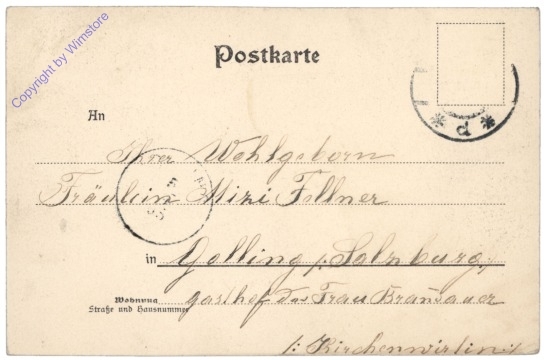 Copyright by Wimstore
Postkarte
* d *
An
Ihrer Wohlgeborn
Fräulein Mizi Fellner
in Golling p. Salzburg,
Wohnung
Straße und Hausnummer
Gasthof der Frau Bransauer
/: Kirchenwirtin :/